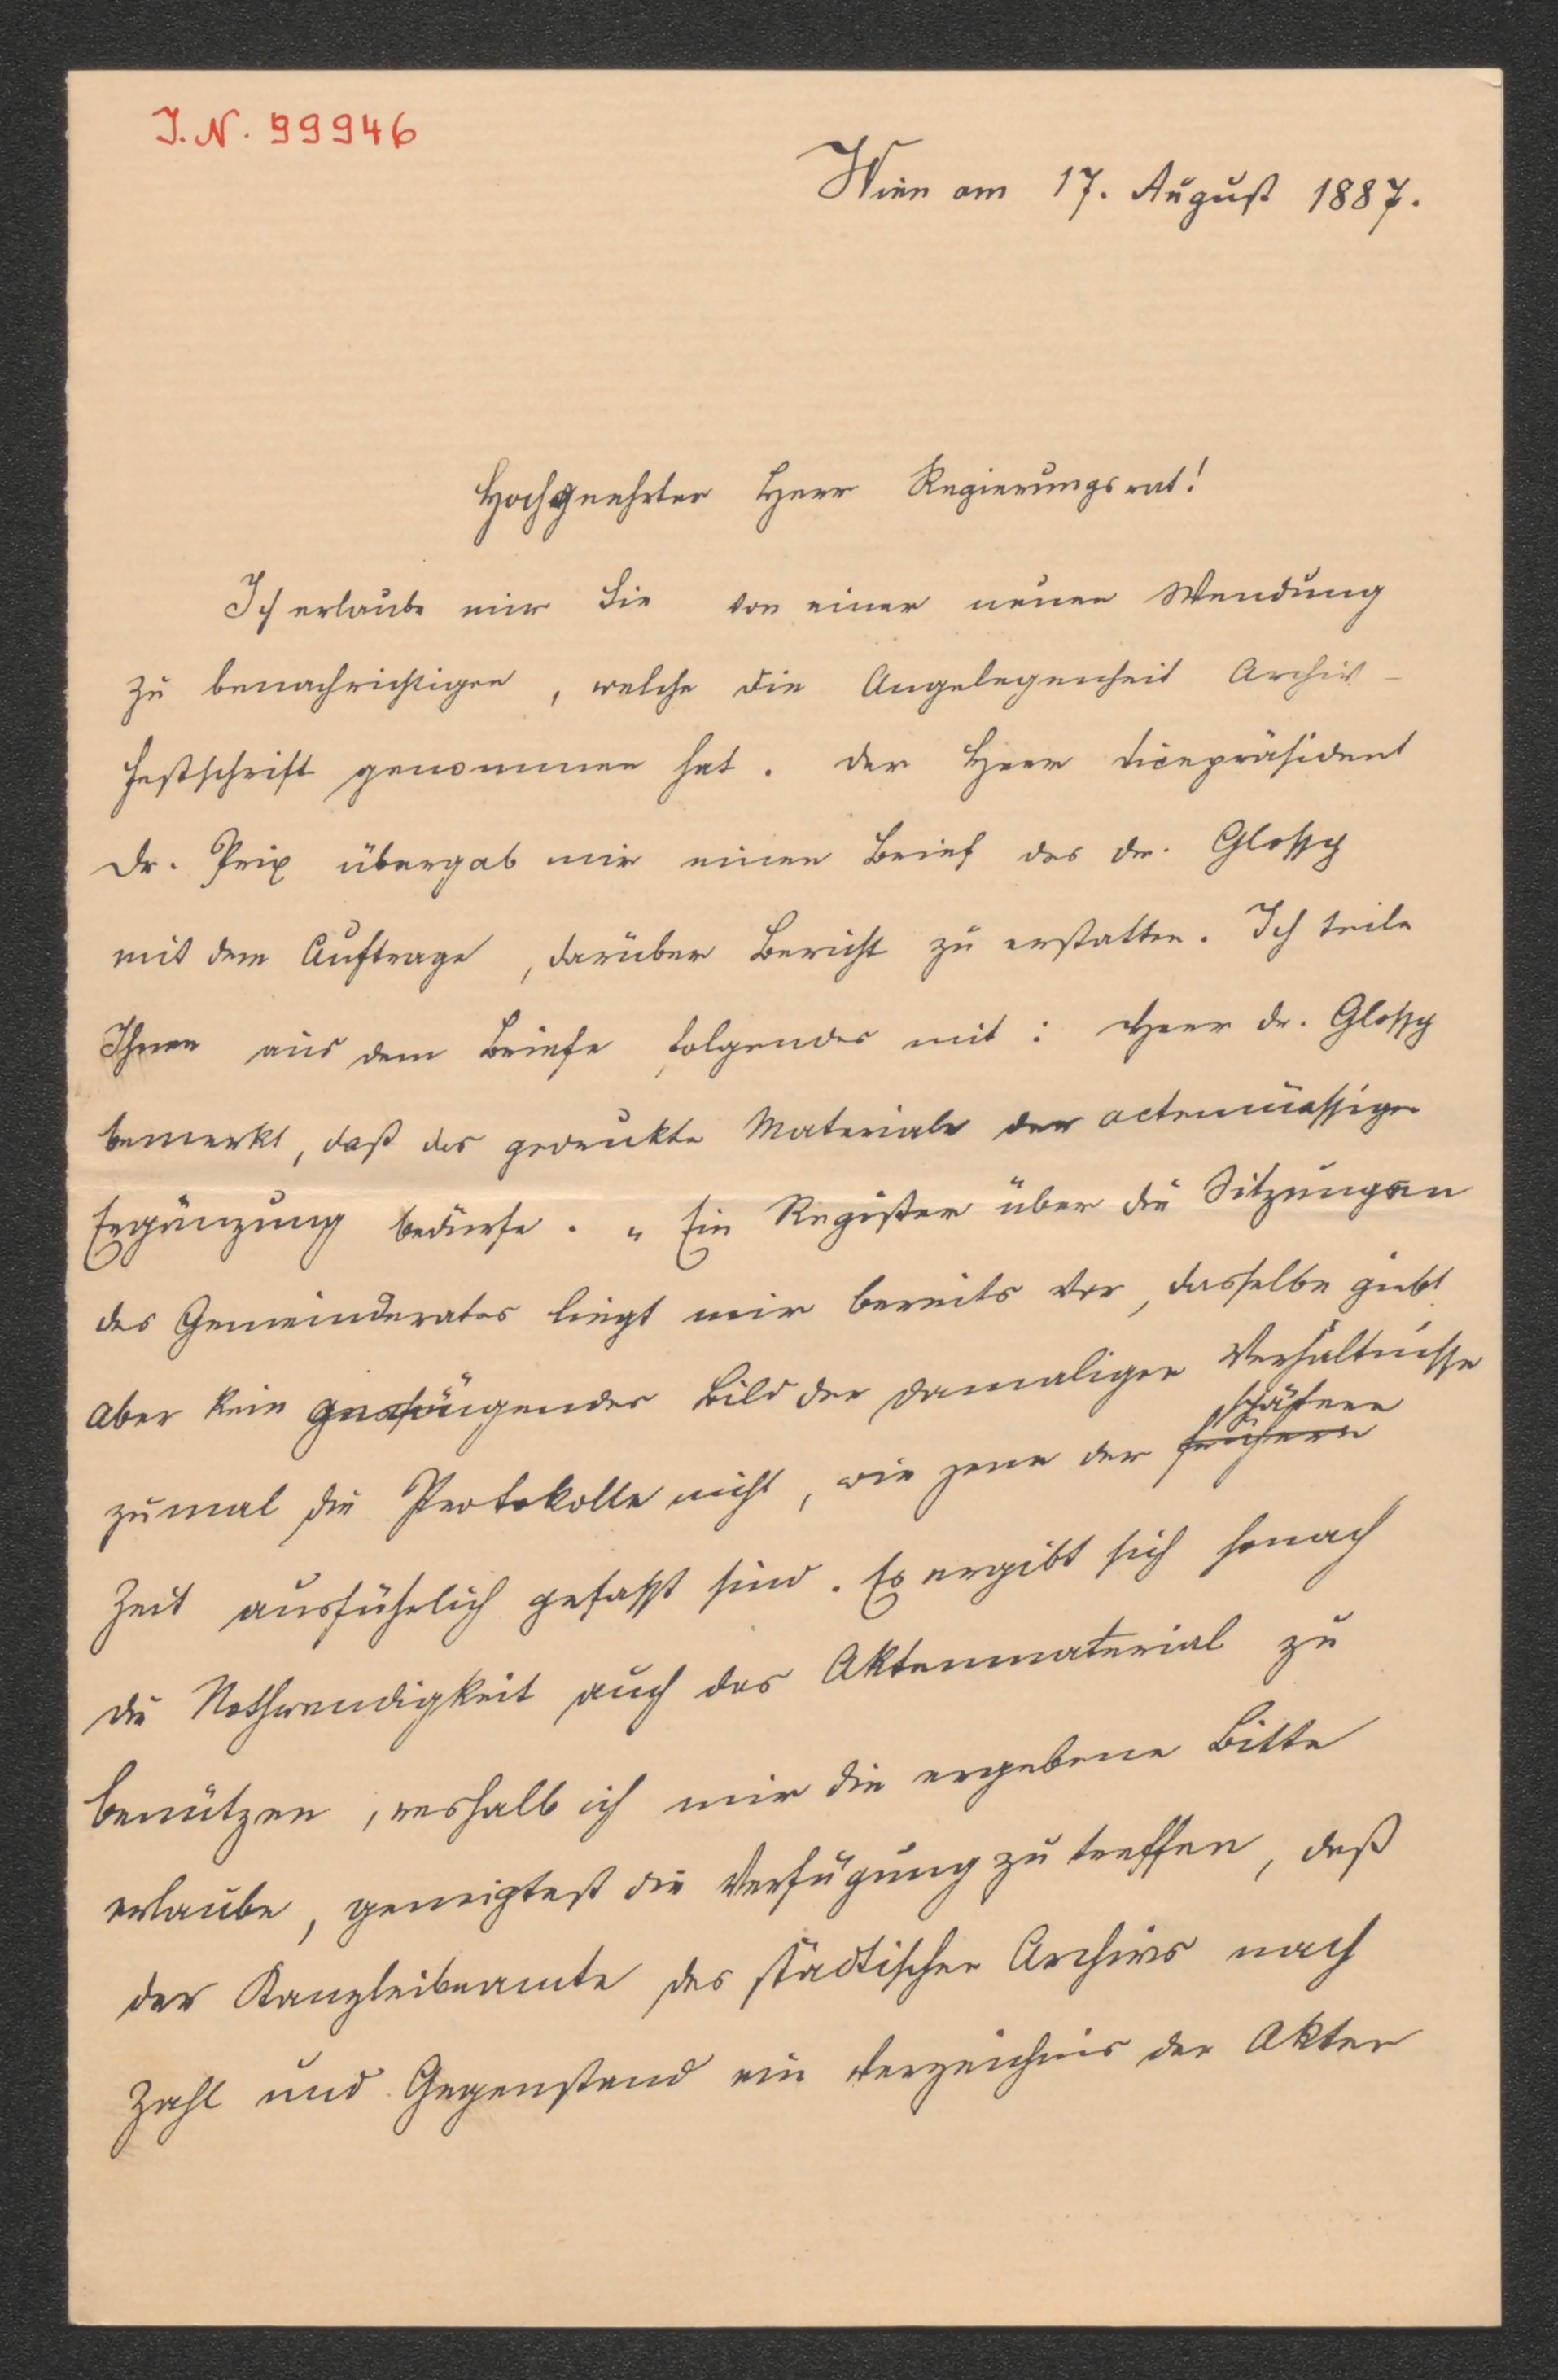 J. N. 99946
Wien am 17. August 1887.
Hochgeehrter Herr Regierungsrat!
Ich erlaube mir Sie von einer neuen Wendung
zu benachrichtigen, welche die Angelegenheit Archiv-
Festschrift genommen hat. Der Herr Vicepräsident
Dr. Prix übergab mir einen Brief des Dr. Glossy
mit dem Auftrage, darüber Bericht zu erstatten. Ich teile
Ihnen aus dem Briefe folgendes mit: Herr Dr. Glossy
bemerkt, daß das gedruckte Materiale der actenmässigen
Ergänzung bedürfe. „Ein Register über die Sitzungen
des Gemeinderates liegt mir bereits vor, dasselbe giebt
aber kein genügendes Bild der damaligen Verhältnisse
spätern
zumal die Protokolle nicht, wie jene der frühern
Zeit ausführlich gefasst sind. Es ergibt sich sonach
die Nothwendigkeit auch das Aktenmaterial zu
benützen, weshalb ich mir die ergebene Bitte
erlaube, geneigtest die Verfügung zu treffen, daß
der Kanzleibeamte des städtischen Archivs nach
Zahl und Gegenstand ein Verzeichnis der Akten